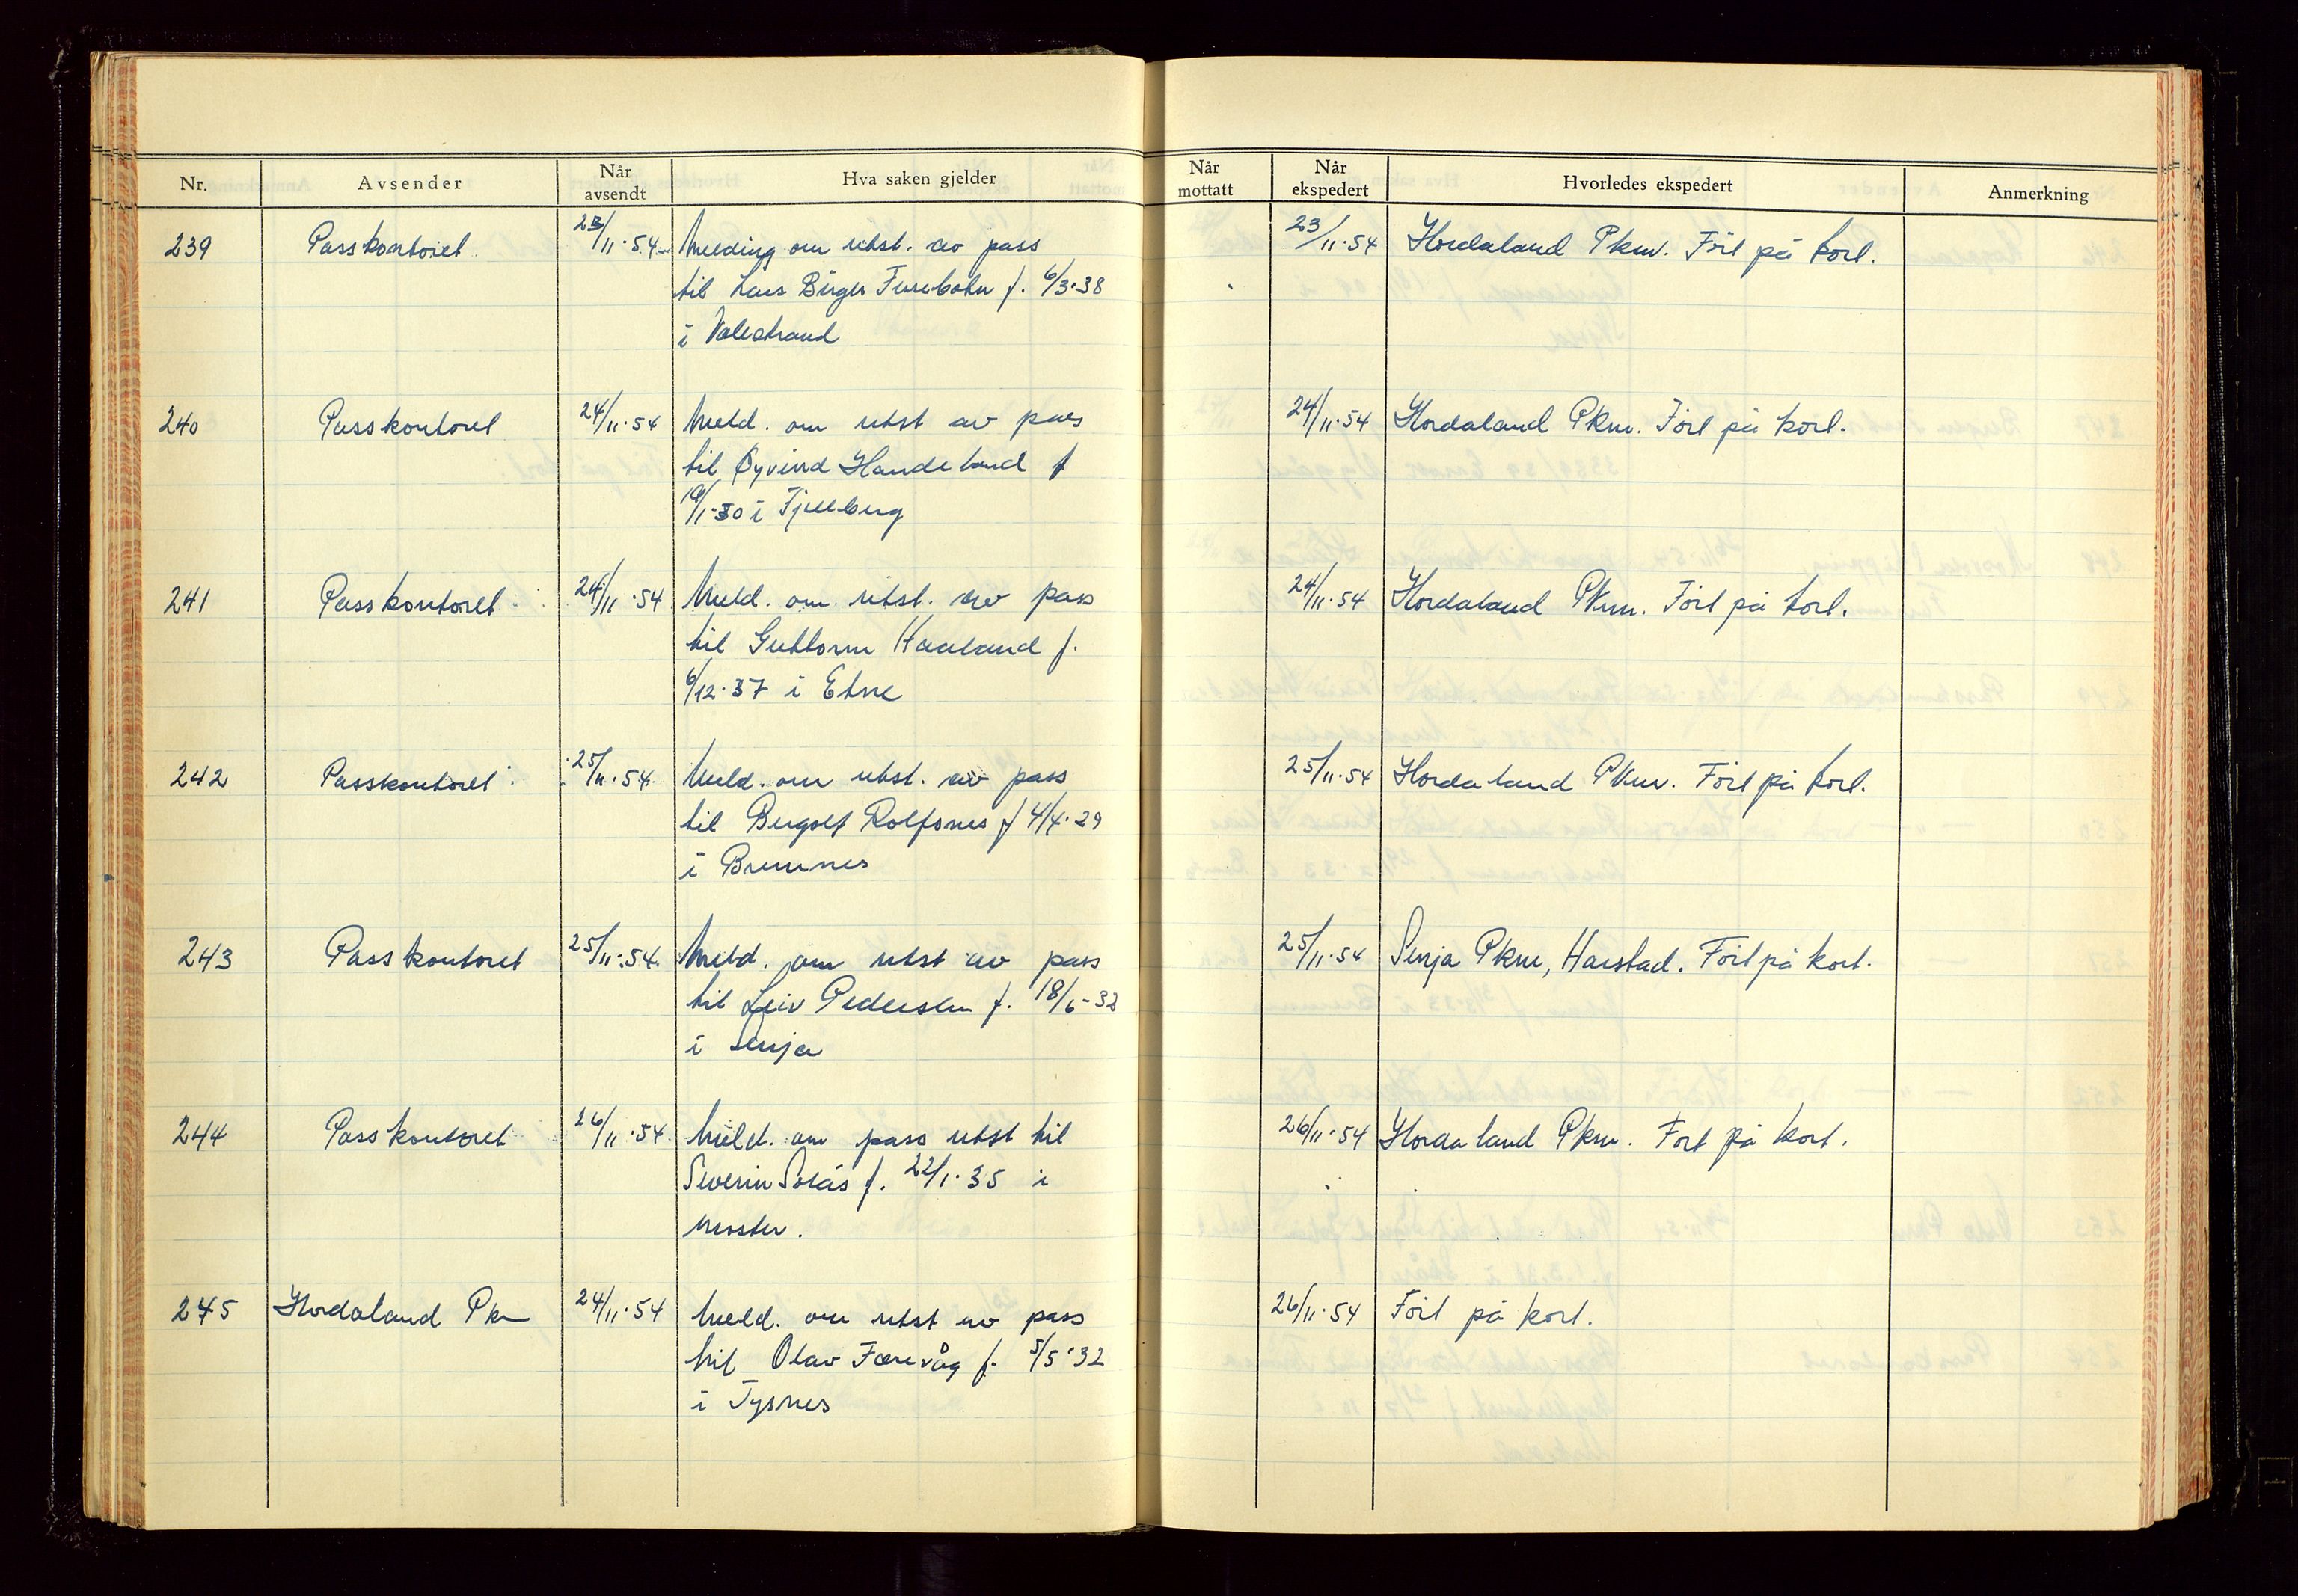 Nr. Avsender Når avsendt Hva saken gjelder Når mottatt Når ekspedert Hvorledes ekspedert Anmerkning
239 Passkontoret 23/11.54 Melding om utst. av pass 23/11.54 Hordaland Pkm. Fört på kort.
til Lars Birger f. 6/3.38
i Valestrand
240 Passkontoret 24/11.54 Meld. om utst av pass 24/11.54 Hordaland Pkm. Fört på kort.
til Øyvind Handeland f
19/1-30 i Fjelberg
241 Passkontoret 24/11.54 Meld. om utst. av pass 24/11.54 Hordaland Pkm. Fört på kort.
til Guttorm Haaland f.
6/12.37 i Etne
242 Passkontoret 25/11.54 Meld. om utst. av pass 25/11.54 Hordaland Pkm. Fört på kort.
til Rolfsnes f 4/4.29
i Bremnes
243 Passkontoret 25/11.54 Meld. om utst av pass 25/11.54 Senja Pkm, Harstad. Fört på kort.
til Leiv Pedersen f. 18/6-32
i Senja
244 Passkontoret 26/11.54 Meld. om pass utst til 26/11.54 Hordaland Pkm. Fort på kort.
Severin Solås f. 22/1.35 i
Moster.
245 Hordaland Pkm 24/11.54 Meld. om utst av pass 26/11.54 Fört på kort.
til Olav Færevåg f. 5/5.32
i Tysnes